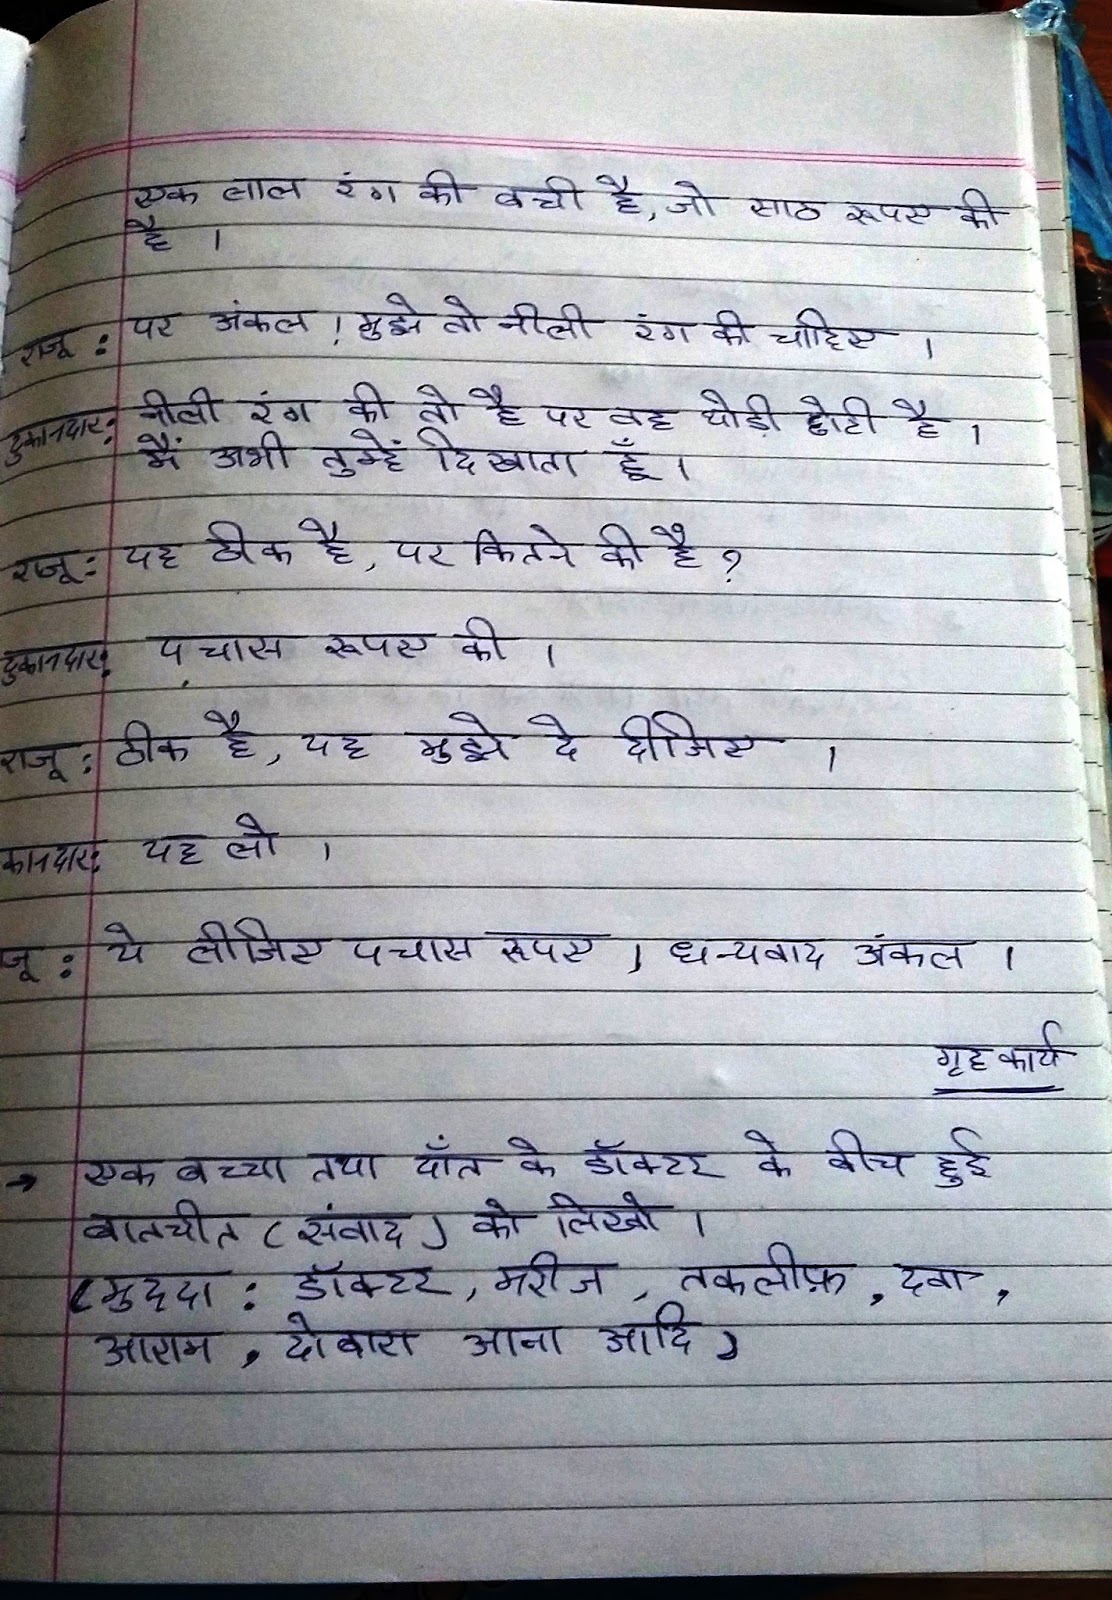 एक लाल रंग की बची है, जो साठ रूपए की
है ।
राजू : पर अंकल ! मुझे तो नीली रंग की चाहिए ।
दुकानदार: नीली रंग की तो है पर वह थोड़ी छोटी है ।
मैं अभी तुम्हें दिखाता हूँ ।
राजू : यह ठीक है, पर कितने की है ?
दुकानदार: पचास रूपए की ।
राजू : ठीक है, यह मुझे दे दीजिए ।
कानदार: यह लो ।
जू : ये लीजिए पचास रूपए । धन्यवाद अंकल ।
गृहकार्य
→ एक बच्चा तथा दाँत के डॉक्टर के बीच हुई
बातचीत (संवाद) को लिखो ।
(मुद्दा : डॉक्टर, मरीज, तकलीफ़, दवा,
आराम, दोबारा आना आदि)